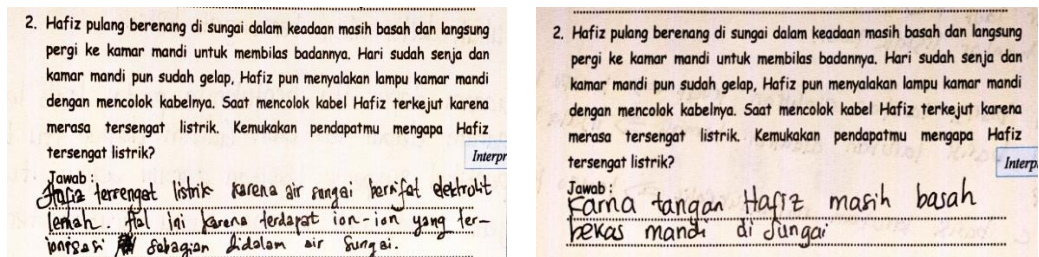 2. Hafiz pulang berenang di sungai dalam keadaan masih basah dan langsung
pergi ke kamar mandi untuk membilas badannya. Hari sudah senja dan
kamar mandi pun sudah gelap, Hafiz pun menyalakan lampu kamar mandi
dengan mencolok kabelnya. Saat mencolok kabel Hafiz terkejut karena
merasa tersengat listrik. Kemukakan pendapatmu mengapa Hafiz
tersengat listrik?
Interpr
Jawab :
Hafiz tersengat listrik karena air sungai bersifat elektrolit
lemah. Hal ini karena terdapat ion-ion yang ter-
ionisasi sebagian didalam air sungai.
2. Hafiz pulang berenang di sungai dalam keadaan masih basah dan langsung
pergi ke kamar mandi untuk membilas badannya. Hari sudah senja dan
kamar mandi pun sudah gelap, Hafiz pun menyalakan lampu kamar mandi
dengan mencolok kabelnya. Saat mencolok kabel Hafiz terkejut karena
merasa tersengat listrik. Kemukakan pendapatmu mengapa Hafiz
tersengat listrik?
Interp
Jawab :
Karna tangan Hafiz masih basah
bekas mandi di sungai